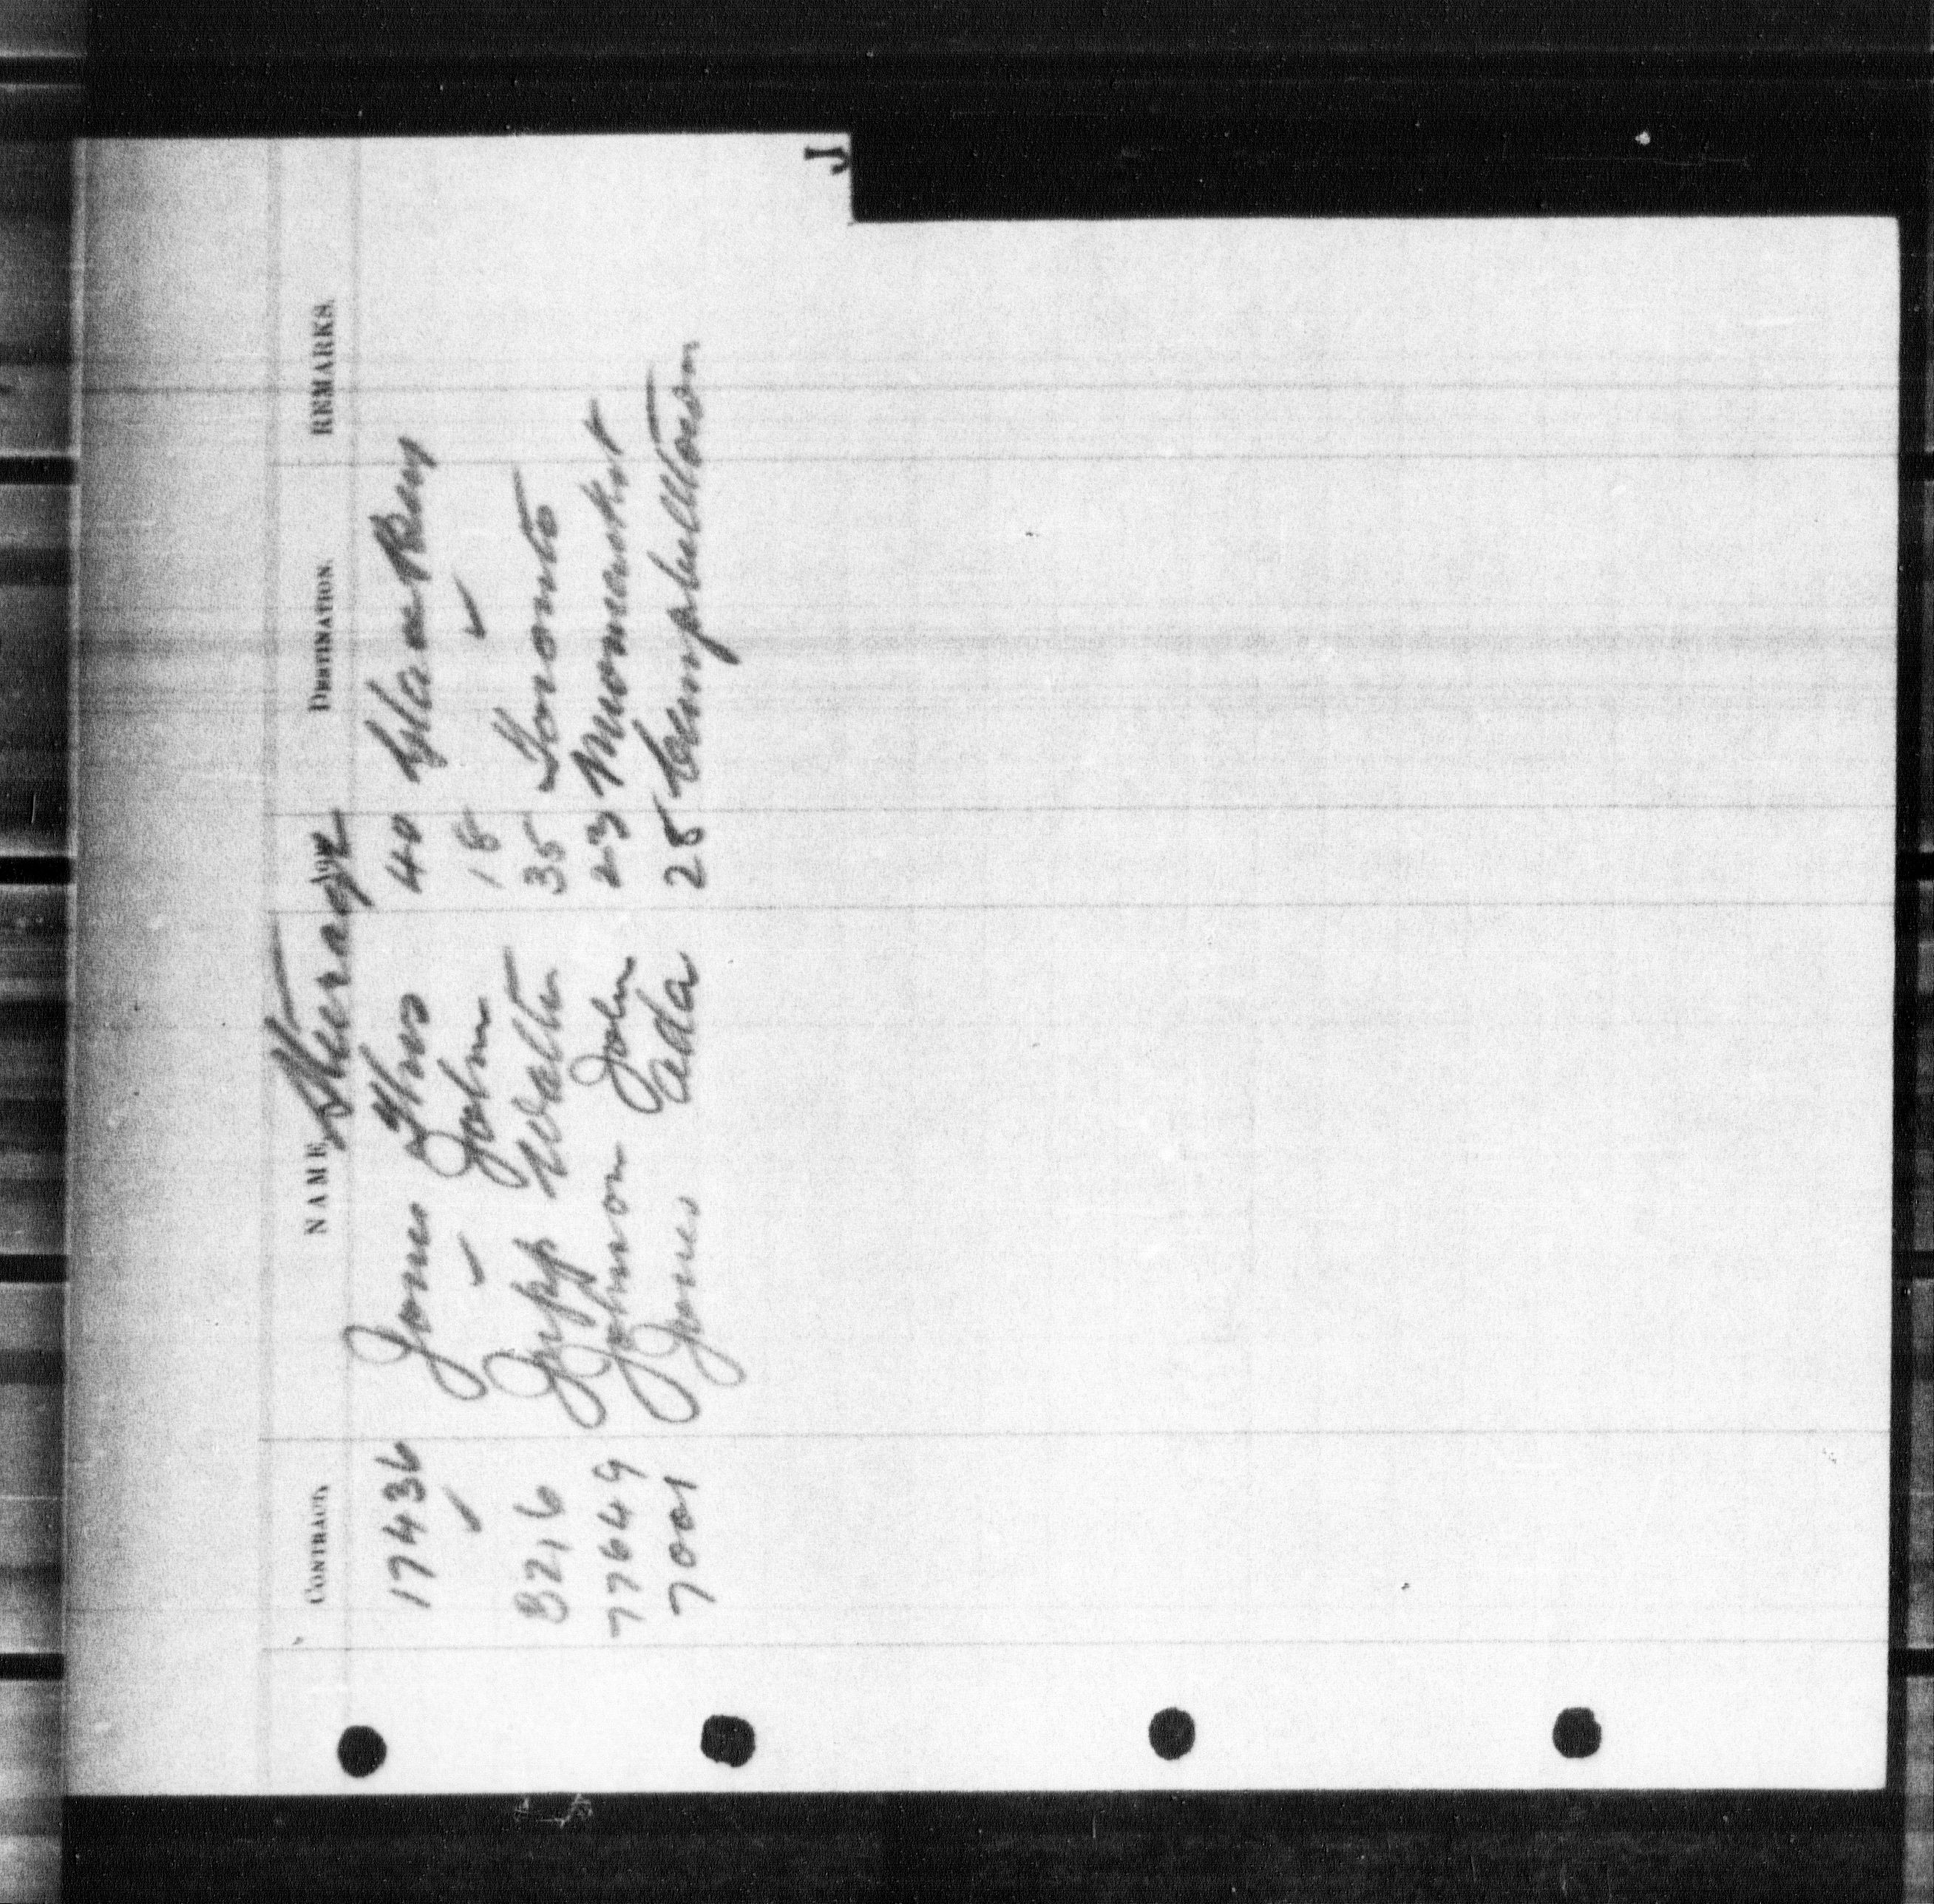 J
CONTRACT. NAME. AGE. DESTINATION. REMARKS.
Steerage
17436 Jones Thos 40 Glace Bay
✓ ✓ John 18 ✓
8216 Jupp Walter 35 Toronto
77649 Johnson John 23
7001 Jones Ada 28 Campbelltown